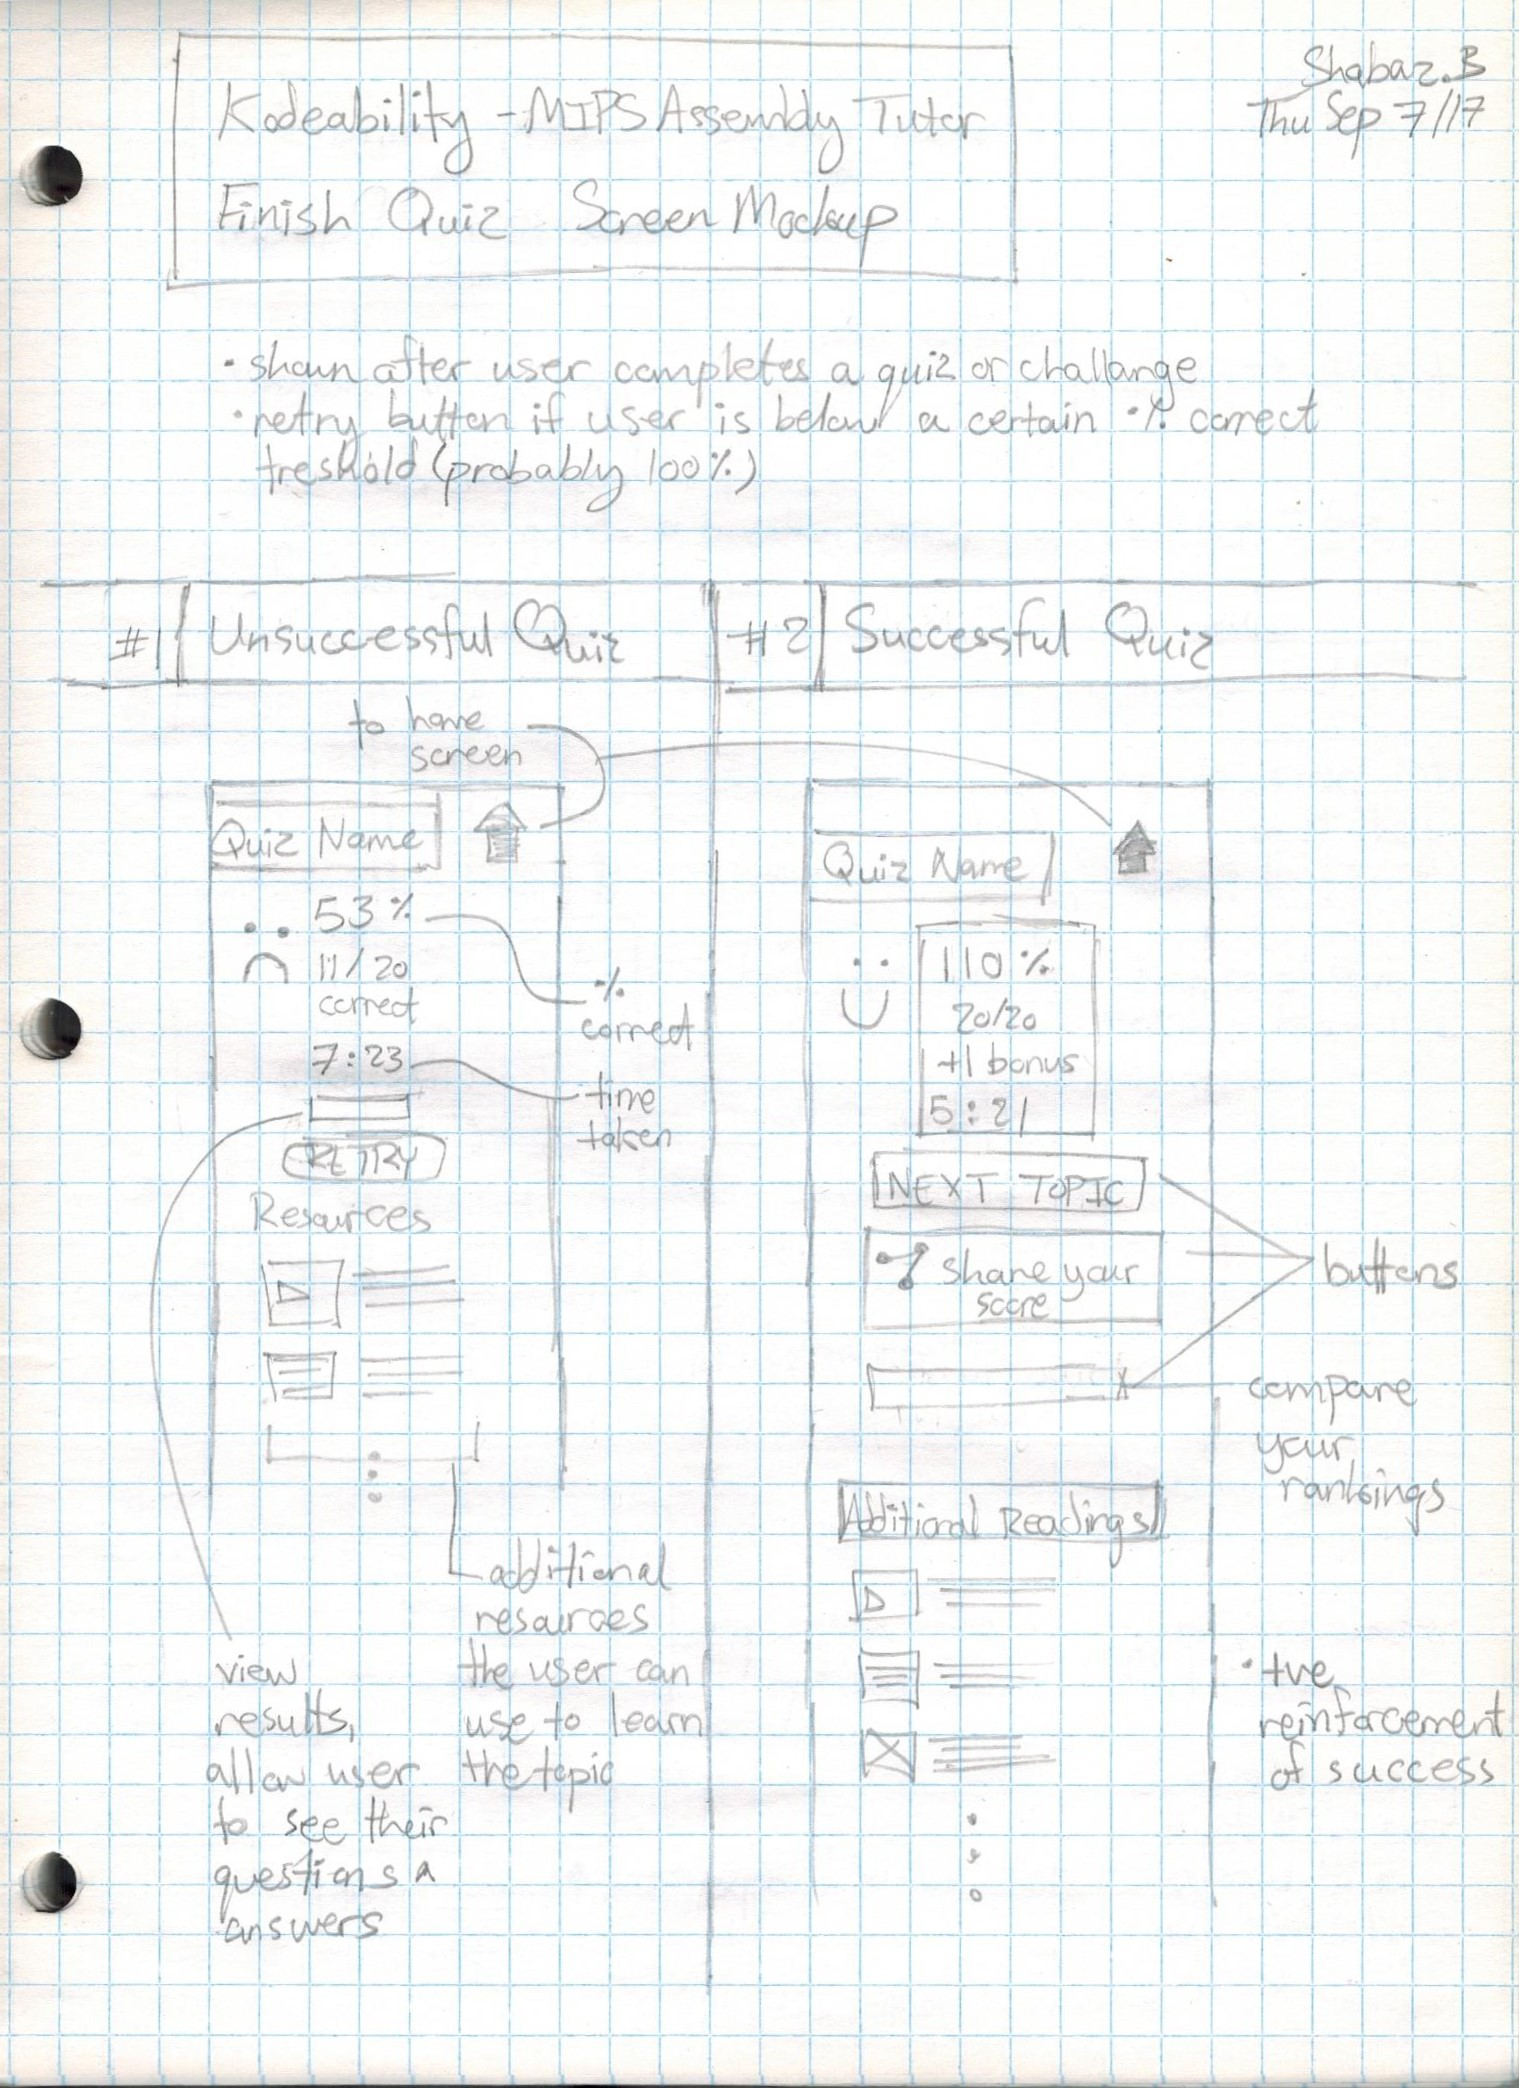 Shabaz.B
Thu Sep 7/17
Kodeability - MIPS Assembly Tutor
Finish Quiz Screen Mockup
• shown after user completes a quiz or challange
• retry button if user is below a certain % correct
treshold (probably 100%)
#1 Unsuccessful Quiz
to home
screen
Quiz Name
53%
11/20
correct
7:23
% 
correct
time
taken
RETRY
Resources
additional
resources
the user can
use to learn
the topic
view
results,
allow user
to see their
questions &
answers
#2 Successful Quiz
Quiz Name
110%
20/20
+1 bonus
5:21
NEXT TOPIC
share your
score
buttons
compare
your
rankings
Additional Readings
• +ve
reinforcement
of success